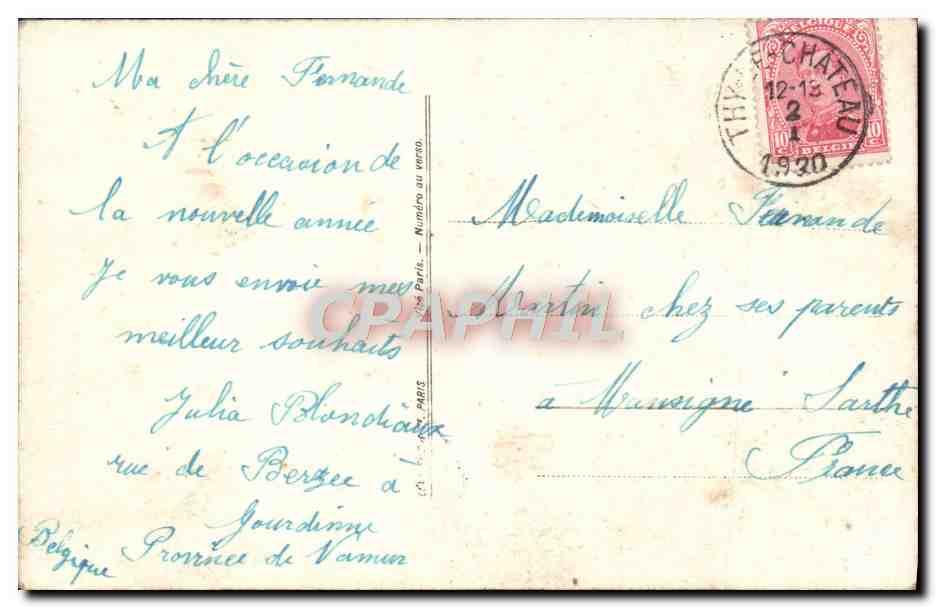 Ma chère Fernande
A l'occasion de
la nouvelle année
Je vous envoie mes
meilleur souhaits
Julia Blondiaux
rue de Berzee à
Gourdinne
Province de Namur
Belgique
Paris. — Numéro au verso.
PARIS
BELGIQUE
10 10
C. C.
BELGIË
CHATEAU
12-13
2
I
1920
Mademoiselle Fernande
Martin chez ses parents
à Mansigné Sarthe
France
CPAPHIL